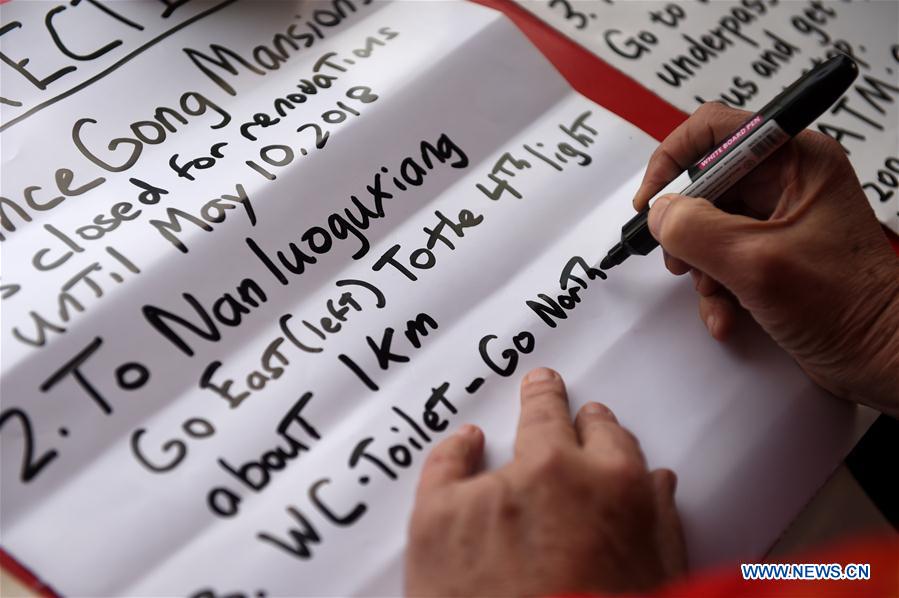 ECTI
nce Gong Mansion
s closed for renovations
until May 10.2018
2. To Nanluoguxiang
Go East (left) To the 4th light
about 1km
WC-Toilet - Go North
3.
Go to
underpass
bus and get
ATM.
200
WHITE BOARD PEN
WWW.NEWS.CN